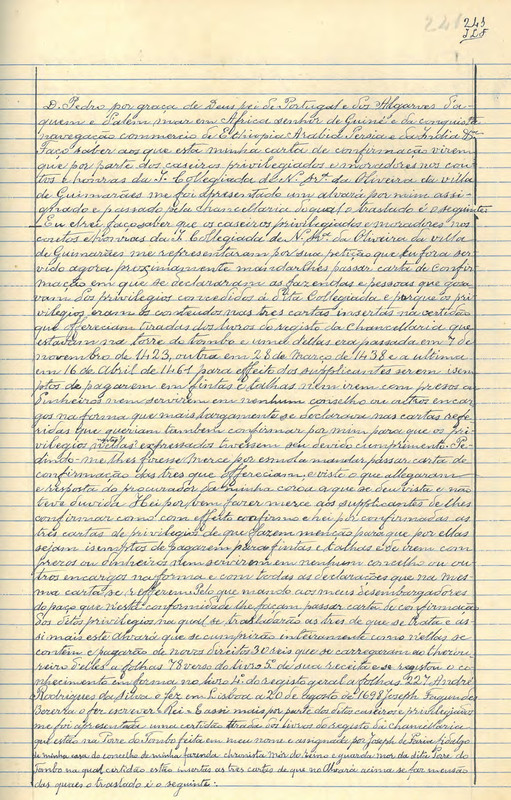 241 243
J L F
D. Pedro por graça de Deus rei de Portugal e dos Algarves d'a-
quem e d'alem mar em Africa senhor de Guiné e da conquista
navegação commercio de Ethiopia Arabia Persia e da India &ª
Faço saber aos que esta minha carta de confirmação virem
que por parte dos caseiros privilegiados e moradores nos cou-
tos e honras da I. Collegiada de N. Srª da Oliveira da villa
de Guimarães me foi apresentado um alvará por mim assi-
gnado e passado pela Chancellaria do qual o traslado é o seguinte
Eu elrei faço saber que os caseiros privilegiados e moradores nos
coutos e honras da I. Collegiada de N. Srª da Oliveira da villa
de Guimarães me representaram por sua petição que eu fora ser-
vido agora proximamente mandar-lhes passar carta de confir-
mação em que se declararam as fazendas e pessoas que goza-
vam dos privilegios concedidos á dita Collegiada e porque os pri-
vilegios eram os conteudos nas tres cartas insertas na certidão
que offereciam tiradas dos livros do registo da Chancellaria que
estavam na torre do tombo e uma dellas era passada em 7 de
novembro de 1423, outra em 28 de Março de 1438 e a ultima
em 16 de Abril de 1461 para effeito dos supplicantes serem isem-
ptos de pagarem em fintas e talhas nem irem com presos ou
dinheiros nem servirem em nenhum conselho ou outros encar-
gos na forma que mais largamente se declarava nas cartas refe-
ridas que queriam tambem confirmar por mim para que os pri-
vilegios nellas expressados tivessem seu devido cumprimento. Pe-
dindo-me lhes fizesse merce por esmola mandar passar carta de
confirmação das tres que offereciam, e visto o que allegaram
e resposta do procurador da minha coroa a que se deu vista e não
teve duvida Hei por bem fazer merce aos supplicantes de lhes
confirmar como com effeito confirmo e hei por confirmadas as
tres cartas de privilegios de que fazem menção para que por ellas
sejam isemptos de pagarem para fintas e talhas e de irem com
prezos ou dinheiros nem servirem em nenhum concelho ou ou-
tros encargos na forma e com todas as declarações que na mes-
ma carta se referem. Pelo que mando aos meus desembargadores
do paço que nesta conformidade lhe façam passar carta de confirmação
dos ditos privilegios na qual se trasladarão as tres de que se trata e as-
si mais este alvará que se cumprirão inteiramente como nellas se
contem e pagarão de novos direitos 30 reis que se carregaram ao thezou-
reiro delles a folhas 78 verso do livro 5º de sua receita e se registou o co-
nhecimento em forma no livro 4º do registo geral a folhas 227 André
Rodrigues da Silva o fez em Lisboa a 20 de agosto de 1698 Joseph Fagundes
Bezerra o fez escrever = Rei = E assi mais por parte dos ditos caseiros e privilegiados
me foi apresentada uma certidão tirada dos livros do registo da chancellaria
que estão na Torre do Tombo feita em meu nome e assignada por Joseph de Faria fidalgo
de minha casa do conselho de minha fazenda chronista mór do Reino e guarda mor da dita Torre do
Tombo na qual certidão estão insertas as tres cartas de que no Alvará acima se faz mensão
das quaes o traslado é o seguinte: